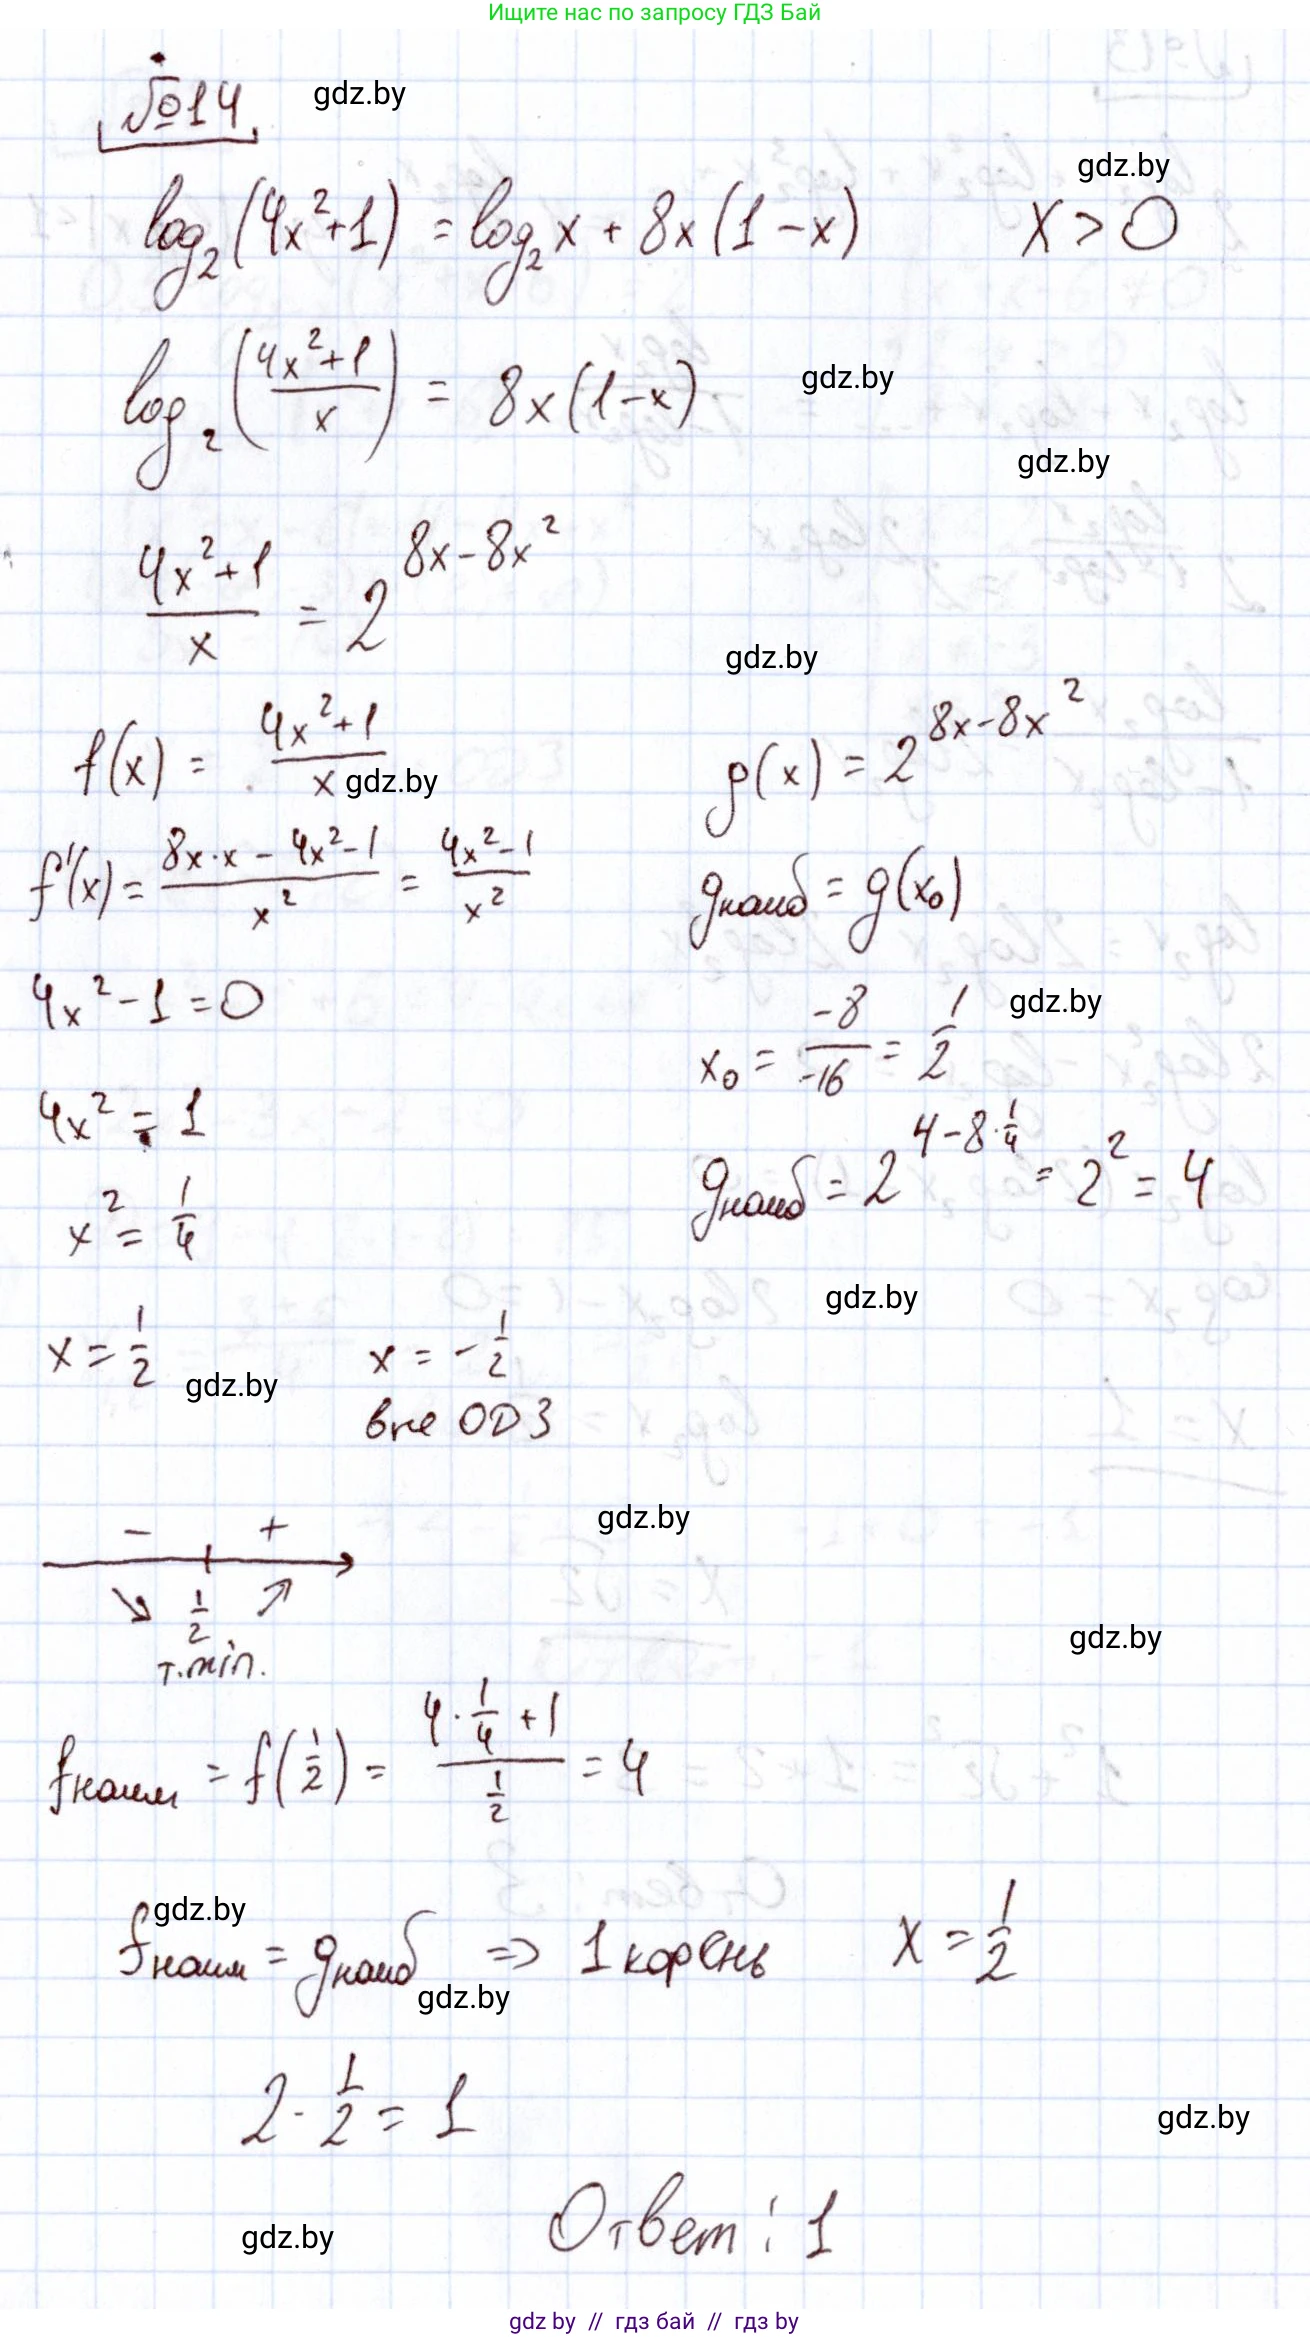 Ищите нас по запросу ГДЗ Бай
№14 gdz.by
gdz.by
log₂(4x²+1) = log₂x + 8x(1-x) x > 0
log₂((4x²+1)/x) = 8x(1-x) gdz.by
gdz.by
(4x²+1)/x = 2^(8x-8x²)
gdz.by
f(x) = (4x²+1)/x gdz.by
g(x) = 2^(8x-8x²)
f'(x) = (8x·x - 4x²-1)/x² = (4x²-1)/x²
gнаиб = g(x₀)
4x²-1 = 0
gdz.by
x₀ = -8/-16 = 1/2
4x² = 1
gнаиб = 2^(4-8·1/4) = 2² = 4
x² = 1/4
gdz.by
x = 1/2 x = -1/2
gdz.by
вне ОДЗ
gdz.by
- +
1/2
т.min.
gdz.by
fнаим = f(1/2) = (4·1/4 + 1)/(1/2) = 4
gdz.by
fнаим = gнаиб => 1 корень x = 1/2
gdz.by
2·1/2 = 1
gdz.by
Ответ: 1
gdz.by
gdz by // гдз бай // гдз by